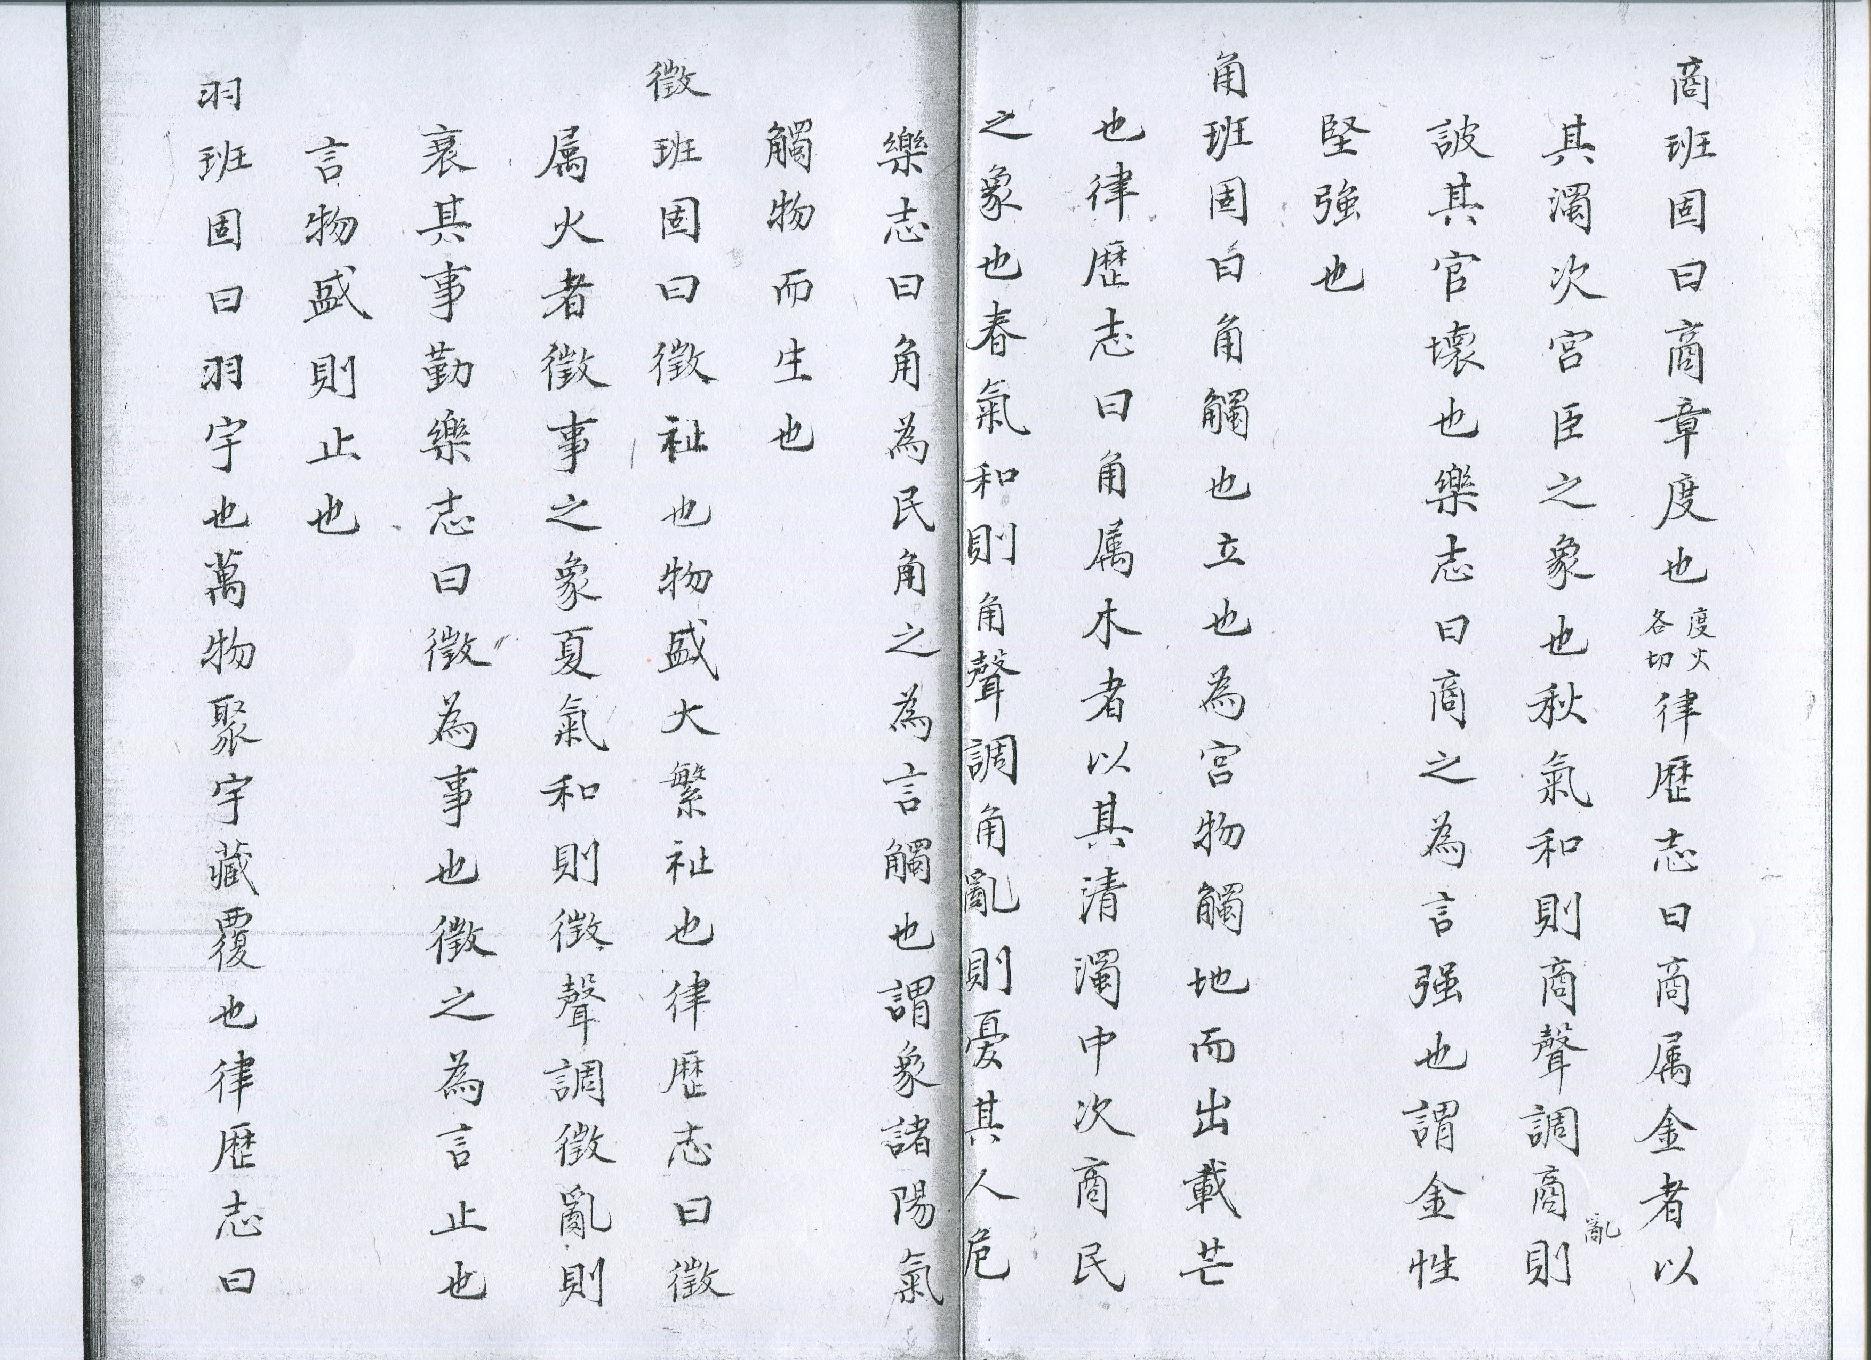 商班固曰商章度也度火各切律歷志曰商属金者以
其濁次宮臣之象也秋氣和則商聲調商亂則
詖其官壞也樂志曰商之為言强也謂金性
堅強也
角班固曰角觸也立也為宮物觸地而出載芒
也律歷志曰角属木者以其清濁中次商民
之象也春氣和則角聲調角亂則憂其人危
樂志曰角為民角之為言觸也謂象諸陽氣
觸物而生也
徵班固曰徵祉也物盛大繁祉也律歷志曰徵
属火者徵事之象夏氣和則徵聲調徵亂則
哀其事勤樂志曰徵為事也徵之為言止也
言物盛則止也
羽班固曰羽宇也萬物聚宇藏覆也律歷志曰